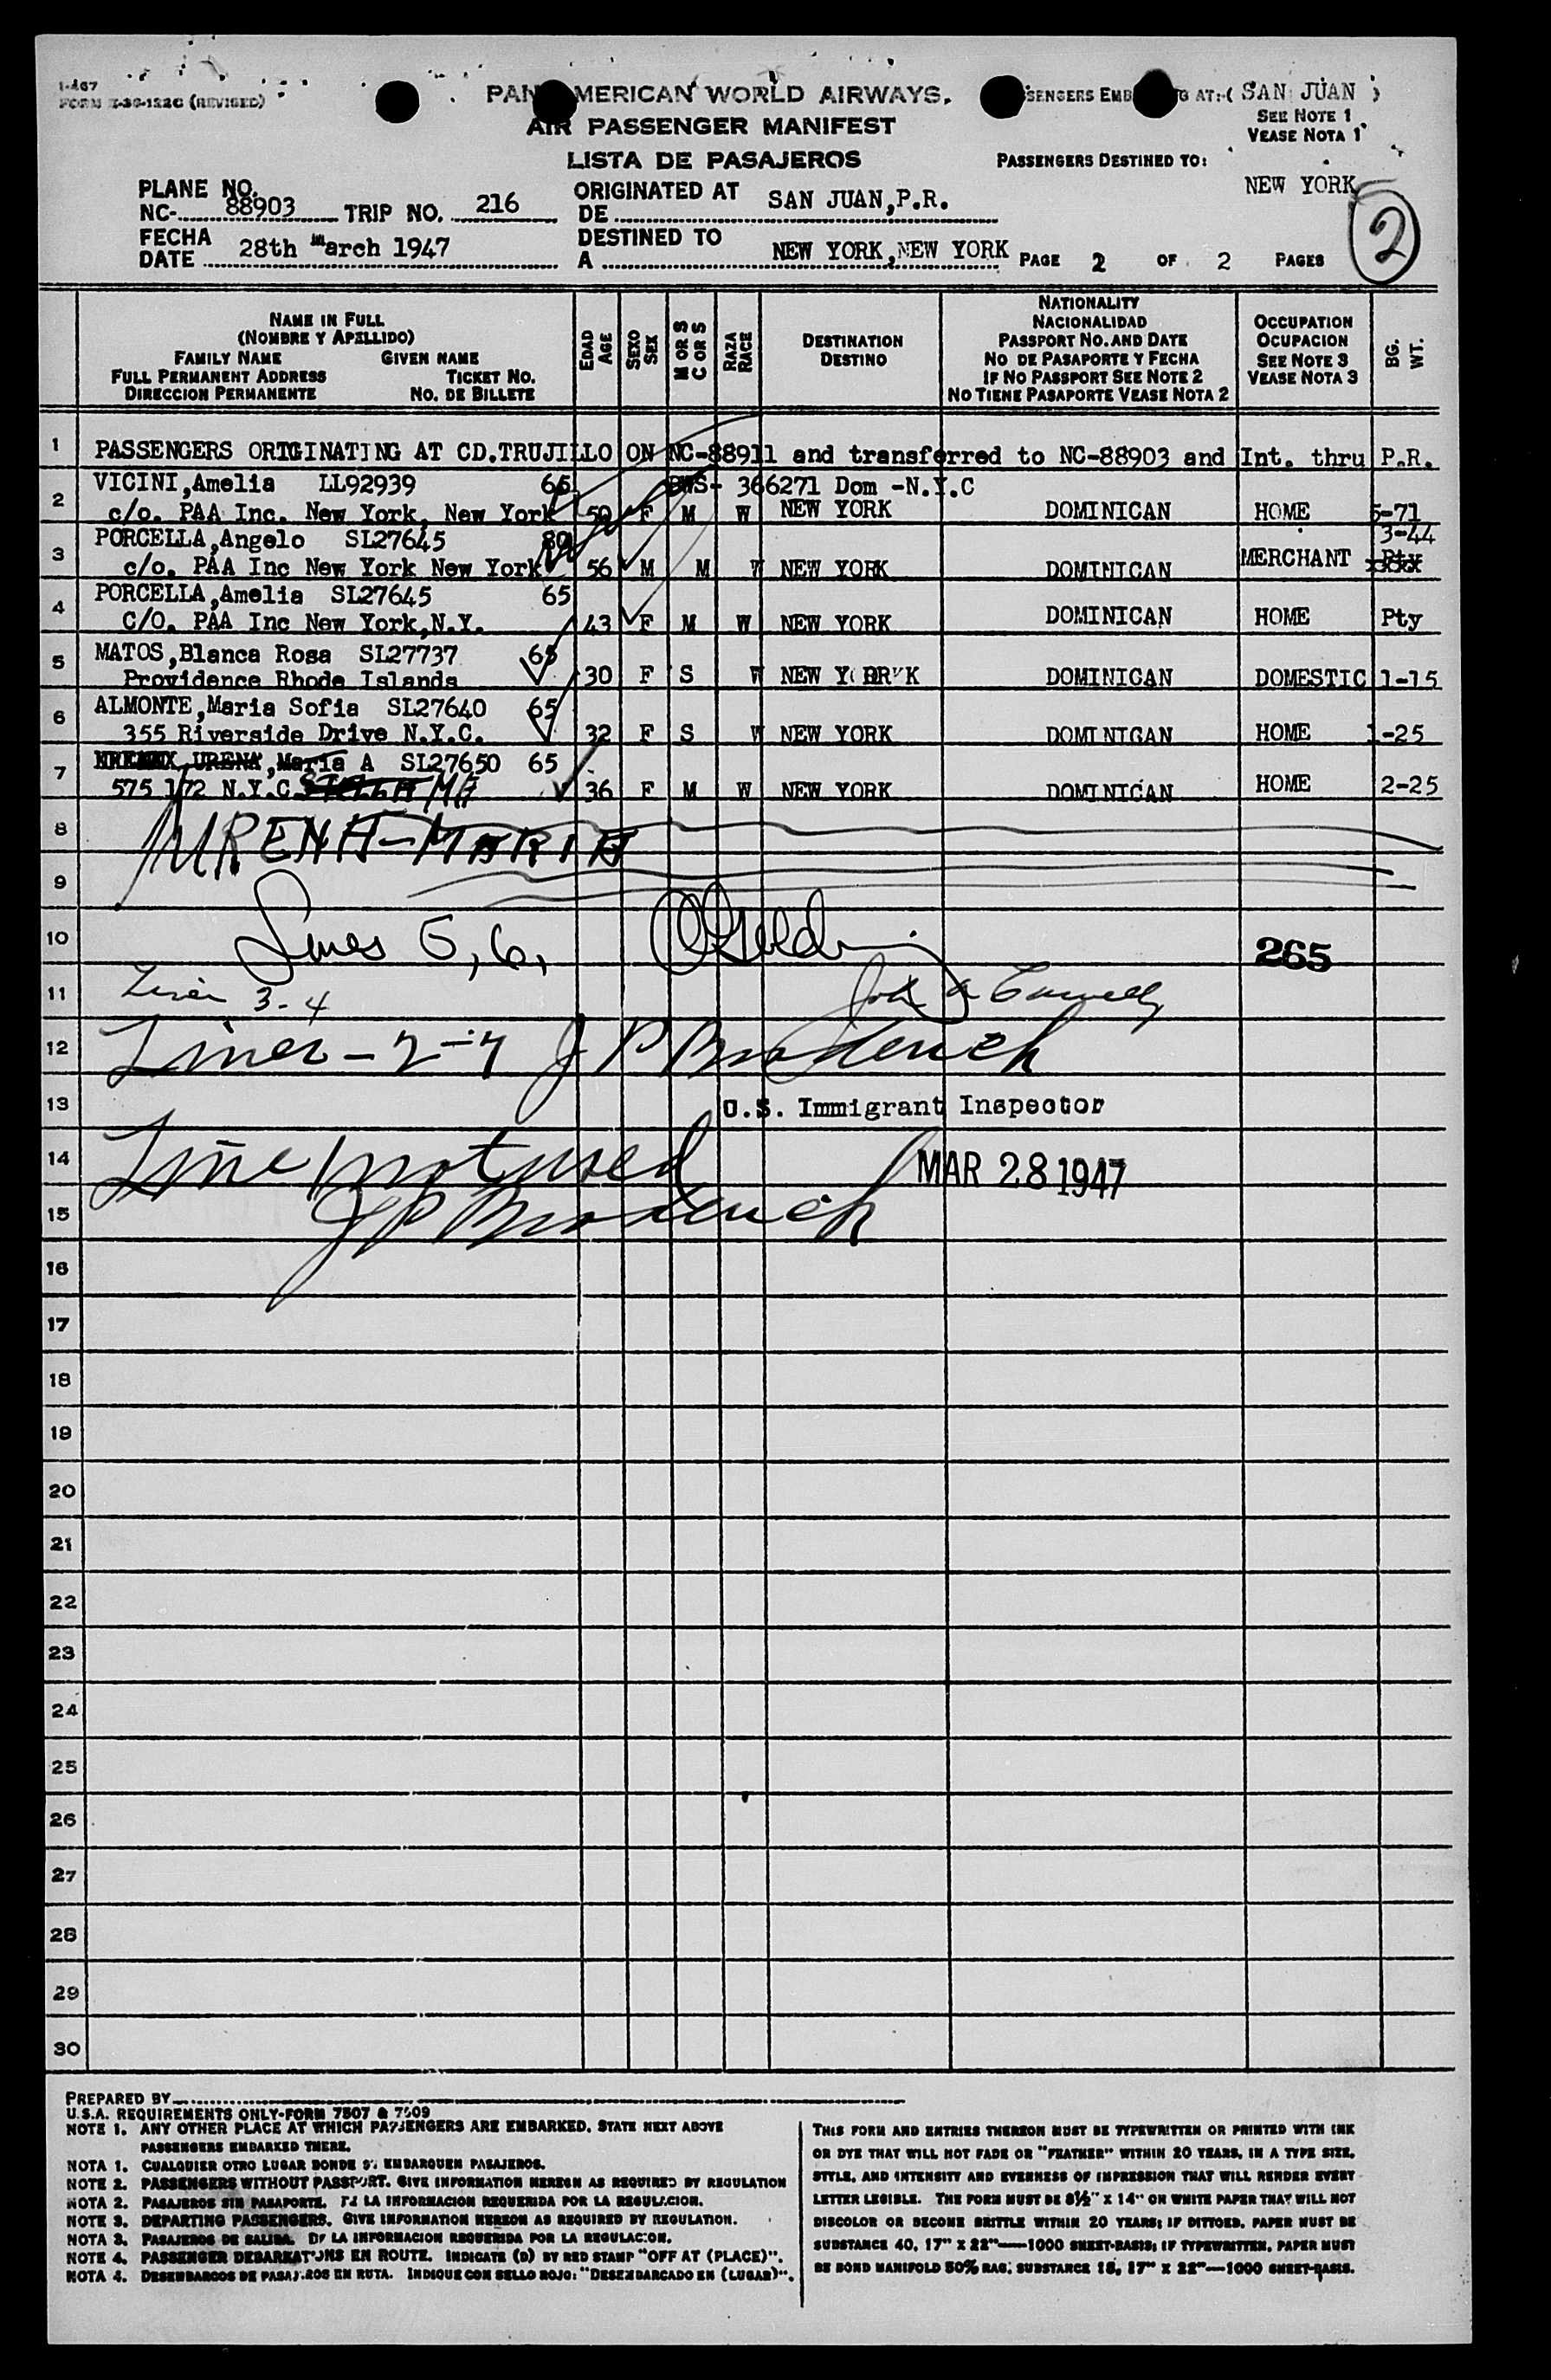 I-467
FORM I-36-122C (REVISED)
PAN AMERICAN WORLD AIRWAYS.
AIR PASSENGER MANIFEST
LISTA DE PASAJEROS
SENGERS EMB G AT:-( SAN JUAN )
SEE NOTE 1
VEASE NOTA 1
PASSENGERS DESTINED TO:
NEW YORK
2
PLANE NO.
NC- 88903 TRIP NO. 216
ORIGINATED AT
DE SAN JUAN,P.R.
FECHA
DATE 28th March 1947
DESTINED TO
A NEW YORK,NEW YORK
PAGE 2 OF 2 PAGES
NAME IN FULL
(NOMBRE Y APELLIDO)
FAMILY NAME GIVEN NAME
FULL PERMANENT ADDRESS TICKET NO.
DIRECCION PERMANENTE NO. DE BILLETE
EDAD
AGE
SEXO
SEX
M OR S
C OR S
RAZA
RACE
DESTINATION
DESTINO
NATIONALITY
NACIONALIDAD
PASSPORT NO. AND DATE
NO DE PASAPORTE Y FECHA
IF NO PASSPORT SEE NOTE 2
NO TIENE PASAPORTE VEASE NOTA 2
OCCUPATION
OCUPACION
SEE NOTE 3
VEASE NOTA 3
BG.
WT.
1 PASSENGERS ORTGINATING AT CD.TRUJILLO ON NC-88911 and transferred to NC-88903 and Int. thru P.R.
2 VICINI,Amelia LL92939 65 366271 Dom -N.Y.C
c/o. PAA Inc. New York, New York 50 F M W NEW YORK DOMINICAN HOME 5-71
3 PORCELLA,Angelo SL27645 80 3-44
c/o. PAA Inc New York New York 56 M M W NEW YORK DOMINICAN MERCHANT
4 PORCELLA,Amelia SL27645 65
C/O. PAA Inc New York,N.Y. 43 F M W NEW YORK DOMINICAN HOME Pty
5 MATOS,Blanca Rosa SL27737 65
Providence Rhode Islands 30 F S W NEW YORK DOMINICAN DOMESTIC 1-15
6 ALMONTE,Maria Sofia SL27640 65
355 Riverside Drive N.Y.C. 32 F S W NEW YORK DOMINICAN HOME 1-25
7 URENA,Maria A SL27650 65
575 172 N.Y.C. 36 F M W NEW YORK DOMINICAN HOME 2-25
8 URENA-MARIA
9
10 Lines 5,6, 265
11 Lines 3-4
12 Lines-2-7 J P Broderick
13 U.S. Immigrant Inspector
14 Line 1 not used MAR 28 1947
15 J P Broderick
16
17
18
19
20
21
22
23
24
25
26
27
28
29
30
PREPARED BY
U.S.A. REQUIREMENTS ONLY-FORM 7507 & 7509
NOTE 1. ANY OTHER PLACE AT WHICH PASSENGERS ARE EMBARKED. STATE NEXT ABOVE
PASSENGERS EMBARKED THERE.
NOTA 1. CUALQUIER OTRO LUGAR DONDE SE EMBARQUEN PASAJEROS.
NOTE 2. PASSENGERS WITHOUT PASSPORT. GIVE INFORMATION HEREON AS REQUIRED BY REGULATION
NOTA 2. PASAJEROS SIN PASAPORTE. DE LA INFORMACION REQUERIDA POR LA REGULACION.
NOTE 3. DEPARTING PASSENGERS. GIVE INFORMATION HEREON AS REQUIRED BY REGULATION.
NOTA 3. PASAJEROS DE SALIDA. DE LA INFORMACION REQUERIDA POR LA REGULACION.
NOTE 4. PASSENGER DEBARKATIONS EN ROUTE. INDICATE (D) BY RED STAMP "OFF AT (PLACE)".
NOTA 4. DESEMBARCOS DE PASAJEROS EN RUTA. INDIQUE CON SELLO ROJO: "DESEMBARCADO EN (LUGAR)".
THIS FORM AND ENTRIES THEREON MUST BE TYPEWRITTEN OR PRINTED WITH INK
OR DYE THAT WILL NOT FADE OR "FEATHER" WITHIN 20 YEARS, IN A TYPE SIZE,
STYLE, AND INTENSITY AND EVENNESS OF IMPRESSION THAT WILL RENDER EVERY
LETTER LEGIBLE. THE FORM MUST BE 8½" X 14" ON WHITE PAPER THAT WILL NOT
DISCOLOR OR BECOME BRITTLE WITHIN 20 YEARS; IF DITTOED, PAPER MUST BE
SUBSTANCE 40, 17" X 22"—1000 SHEET-BASIS; IF TYPEWRITTEN, PAPER MUST
BE BOND MANIFOLD 50% RAG, SUBSTANCE 18, 17" X 22"—1000 SHEET-BASIS.